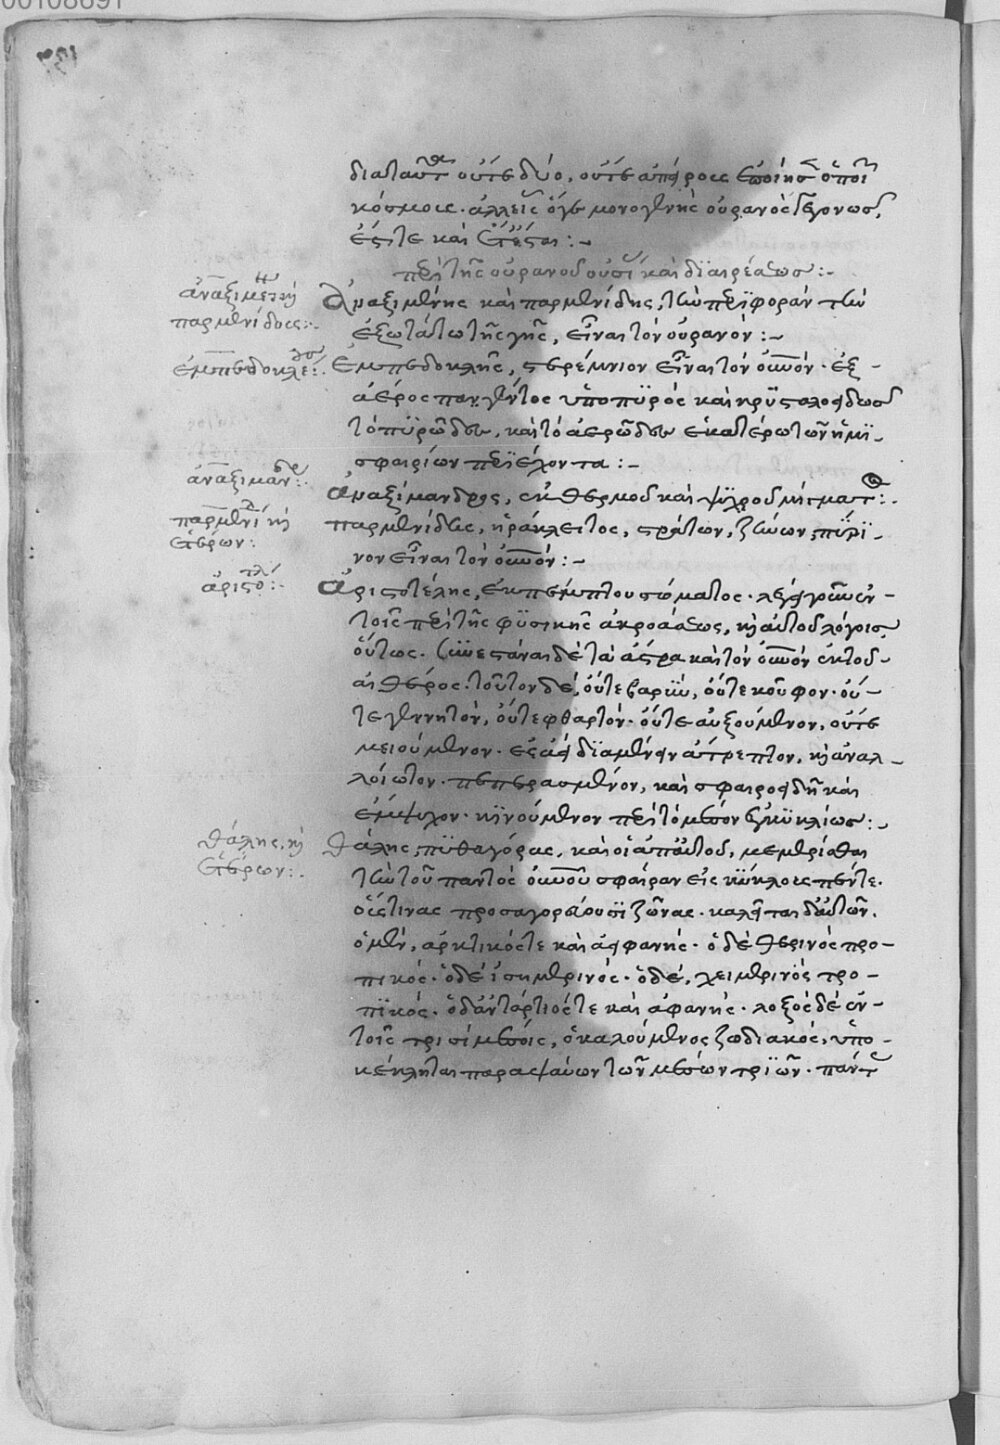 00108691
διαταῦτα οὔτε δύο, οὔτε ἀπείρους ἐποίησεν ὁ ποιῶν
κόσμους· ἀλλ' εἷς ὅγε μονογενὴς οὐρανὸς γεγονὼς,
ἔστι τε καὶ ἔτ' ἔσται :-
περὶ τῆς οὐρανοῦ οὐσίας καὶ διαιρέσεως :-
ἀναξιμένους καὶ
Ἀναξιμένης καὶ παρμενίδης, τὴν περιφορὰν τὴν
παρμενίδους :-
ἐξωτάτω τῆς γῆς, εἶναι τὸν οὐρανόν :-
ἐμπεδοκλέους :
Ἐμπεδοκλῆς, στερέμνιον εἶναι τὸν οὐνόν· ἐξ -
ἀέρος παγέντος ὑπὸ πυρὸς κρυσταλοειδῶς
τὸ πυρῶδες, καὶ τὸ ἀερῶδες ἑκατέρω τῶν ἡμι-
σφαιρίων περιέχοντα :-
ἀναξιμάνδρου :
Ἀναξίμανδρος, ἐκ θερμοῦ καὶ ψυχροῦ μίγματος :.
παρμενίδου καὶ
παρμενίδης, ἡράκλειτος, στράτων, ζήνων, πύρι-
ἑτέρων :
νον εἶναι τὸν οὐνόν :-
ἀριστοτέλους :
Ἀριστοτέλης, ἐκ πέμπτου σώματος· λέγει γοῦν ἐν -
τοῖς περὶ τῆς φυσικῆς ἀκροάσεως, καὶ αὐτοῦ λόγοις
οὕτως. συνεστάναι δὲ τὰ ἄστρα καὶ τὸν οὐνόν ἐκ τοῦ -
αἰθέρος· τοῦτον δὲ, οὔτε βαρὺν, οὔτε κοῦφον· οὔ -
τε γεννητὸν, οὔτε φθαρτόν· οὔτε αὐξούμενον, οὔτε
μειούμενον· ἐς ἀεὶ διαμένειν ἄτρεπτον, καὶ ἀναλ -
λοίωτον· πεπερασμένον, καὶ σφαιροειδῆ καὶ
ἔμψυχον· κινούμενον περὶ τὸ μέσον ἐγκυκλίως :-
θάλης, καὶ
Θάλης, πυθαγόρας, καὶ οἱ ἀπ' αὐτοῦ, μεμερίσθαι
ἑτέρων :.
τὴν τοῦ παντὸς οὐνοῦ σφαῖραν εἰς κύκλους πέντε·
οὕστινας προσαγορεύουσι ζώνας· καλεῖται δ' αὐτῶν.
ὁ μὲν, ἀρκτικός τε καὶ ἀειφανής· ὁ δὲ θερινὸς προ-
πικός· ὁ δὲ ἰσημερινός· ὁ δὲ, χειμερινὸς τρο -
πικός· ὁ δ' ἀνταρτικός τε καὶ ἀφανής· λοξὸς δὲ ἐν -
τοῖς τρισὶ μέσοις, ὁ καλούμενος ζωδιακός, ὑπο -
κέκληται παραψαύων τῶν μέσων τριῶν· πάντας